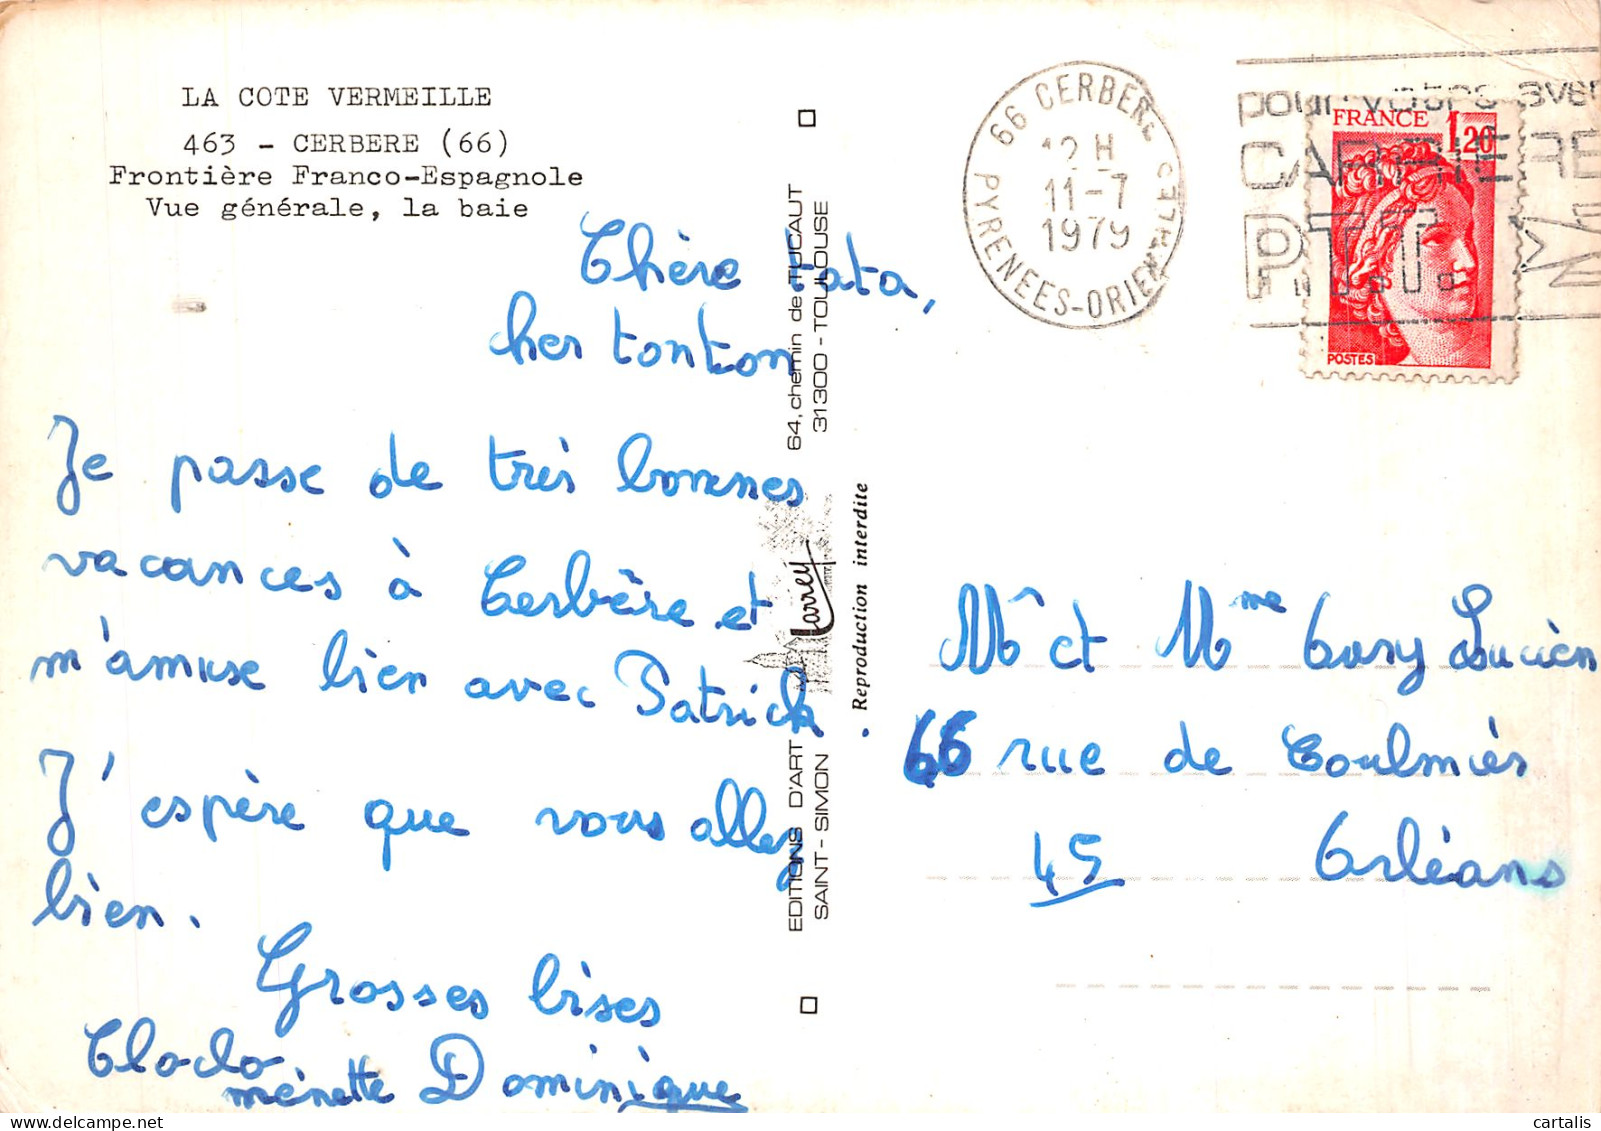 LA COTE VERMEILLE
463 - CERBERE (66)
Frontière Franco-Espagnole
Vue générale, la baie
Chère tata,
cher tonton
Je passe de très bonnes
vacances à Cerbère et
m'amuse bien avec Patrick.
J'espère que vous allez
bien.
Grosses bises
Cloclo
ménette Dominique
EDITIONS D'ART
SAINT-SIMON
Larrey
64, chemin de TUCAUT
31300 - TOULOUSE
Reproduction interdite
66 CERBERE
12 H
11-7
1979
PYRENEES-ORIENTALES
pour votre aven
CARRIERE
P.T.T.
FRANCE 1,20
POSTES
Mr et Mme Lucien
66 rue de Coulmiès
45 Orléans
cartalis